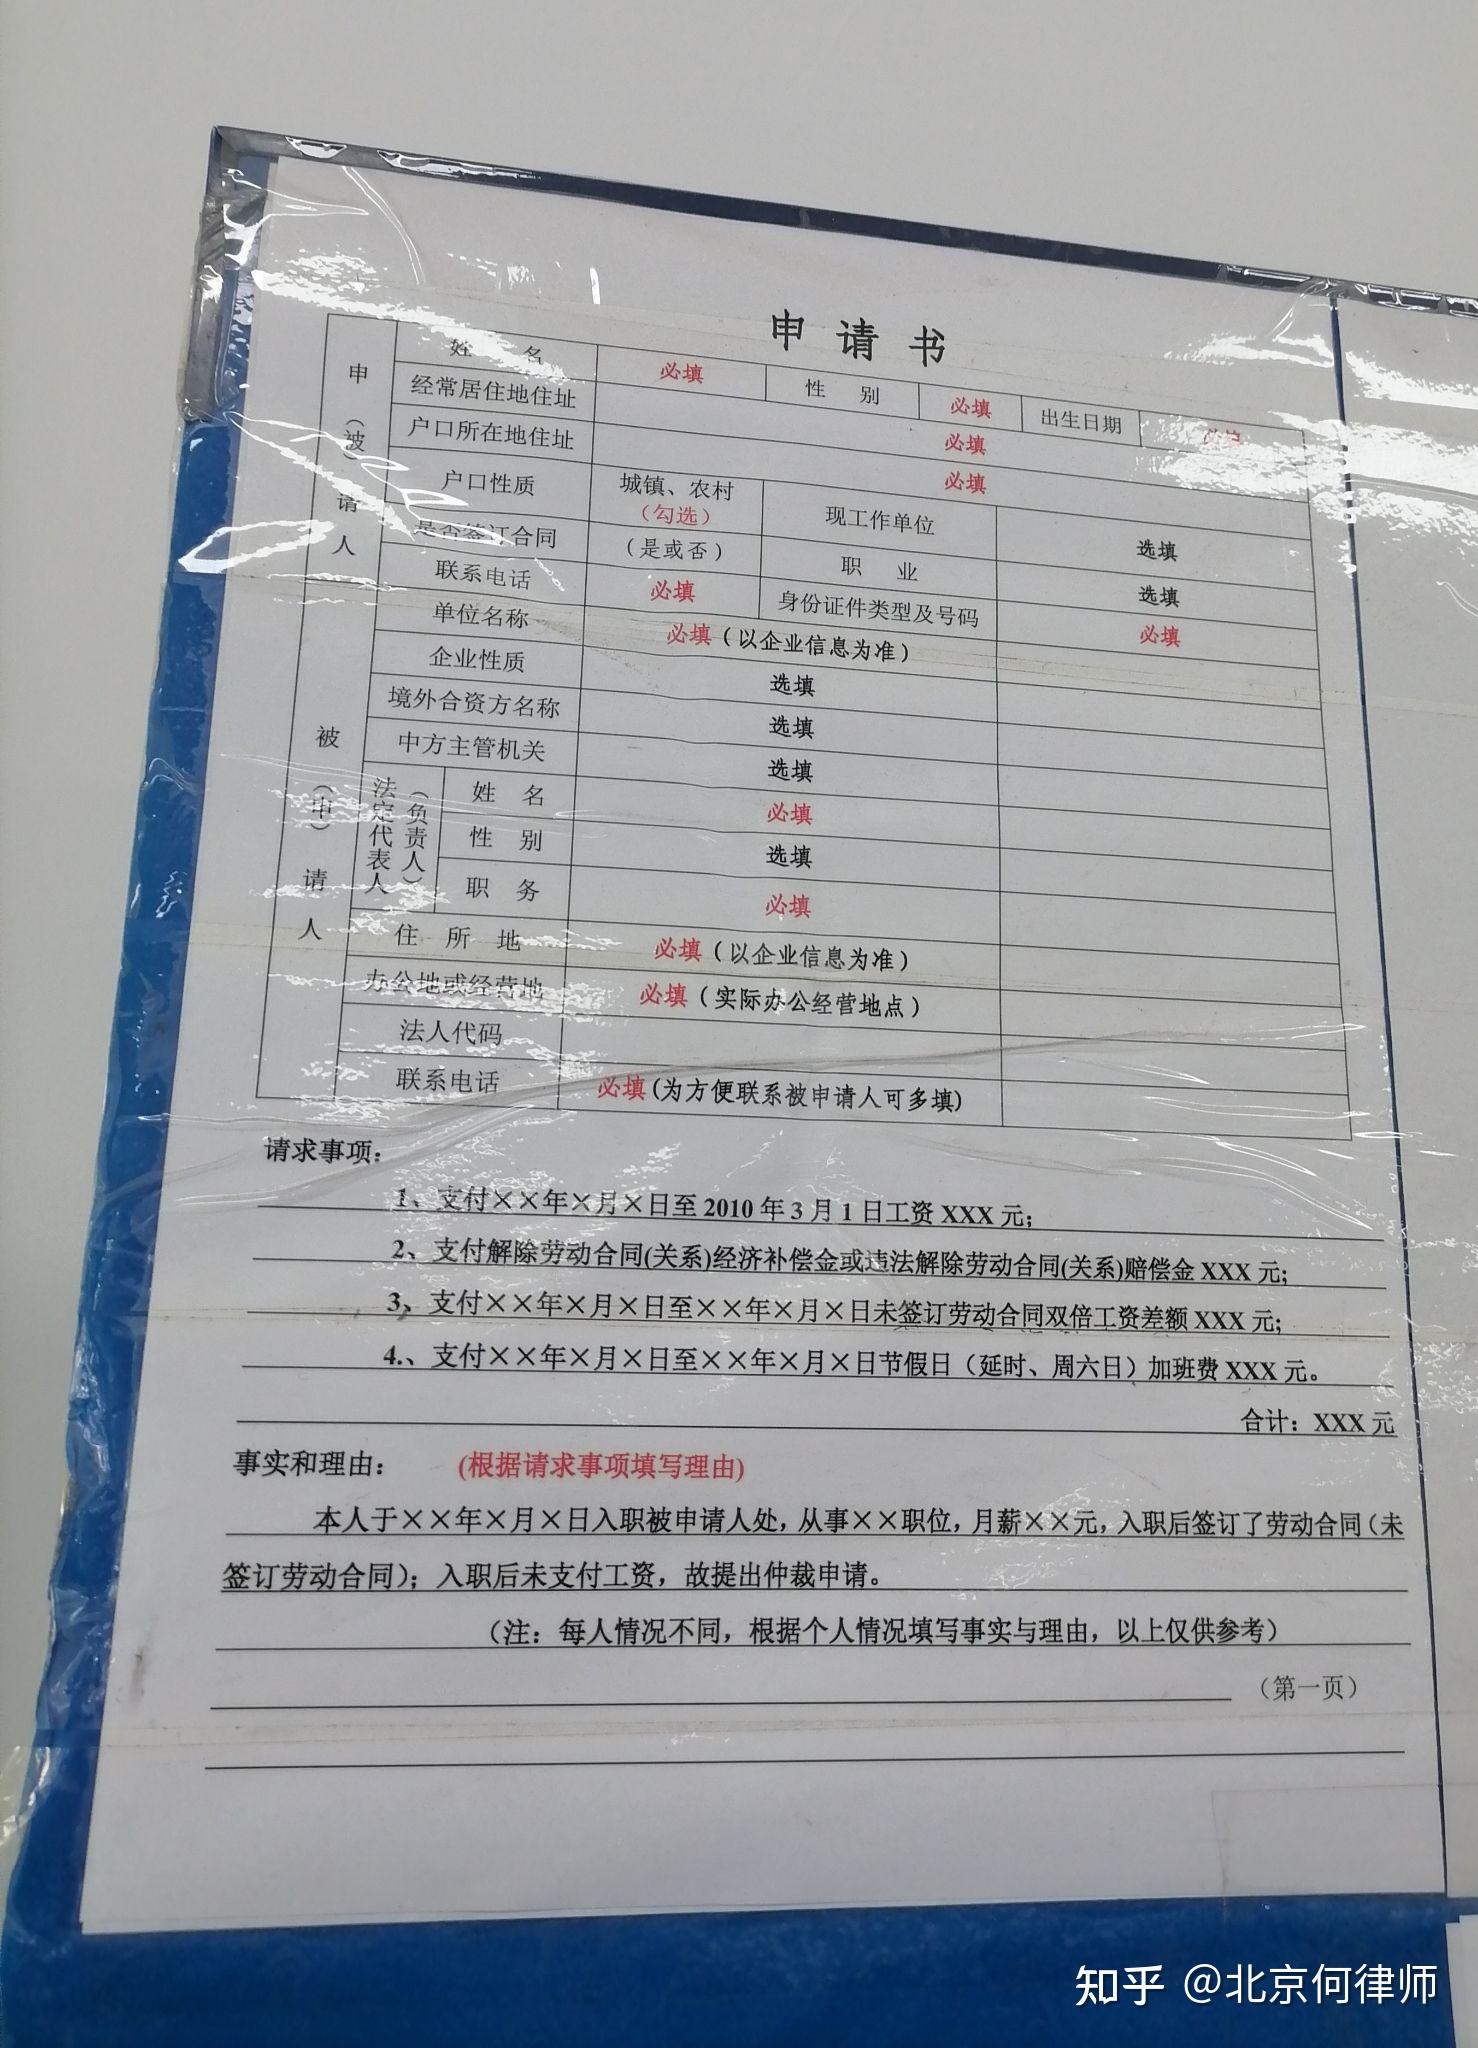 申请书
申（被）请人
姓名 必填 性别 必填 出生日期 必填
经常居住地住址 必填
户口所在地住址 必填
户口性质 城镇、农村（勾选） 现工作单位 选填
是否签订合同 （是或否） 职业 选填
联系电话 必填 身份证件类型及号码 必填
被（申）请人
单位名称 必填（以企业信息为准）
企业性质 选填
境外合资方名称 选填
中方主管机关 选填
法定代表人（负责人）
姓名 必填
性别 选填
职务 必填
住所地 必填（以企业信息为准）
办公地或经营地 必填（实际办公经营地点）
法人代码
联系电话 必填(为方便联系被申请人可多填)
请求事项：
1、支付××年×月×日至2010年3月1日工资XXX元;
2、支付解除劳动合同(关系)经济补偿金或违法解除劳动合同(关系)赔偿金XXX元;
3、支付××年×月×日至××年×月×日未签订劳动合同双倍工资差额XXX元;
4.、支付××年×月×日至××年×月×日节假日（延时、周六日）加班费XXX元。
合计：XXX元
事实和理由： (根据请求事项填写理由)
本人于××年×月×日入职被申请人处，从事××职位，月薪××元，入职后签订了劳动合同（未
签订劳动合同）；入职后未支付工资，故提出仲裁申请。
（注：每人情况不同，根据个人情况填写事实与理由，以上仅供参考）
（第一页）
知乎 @北京何律师